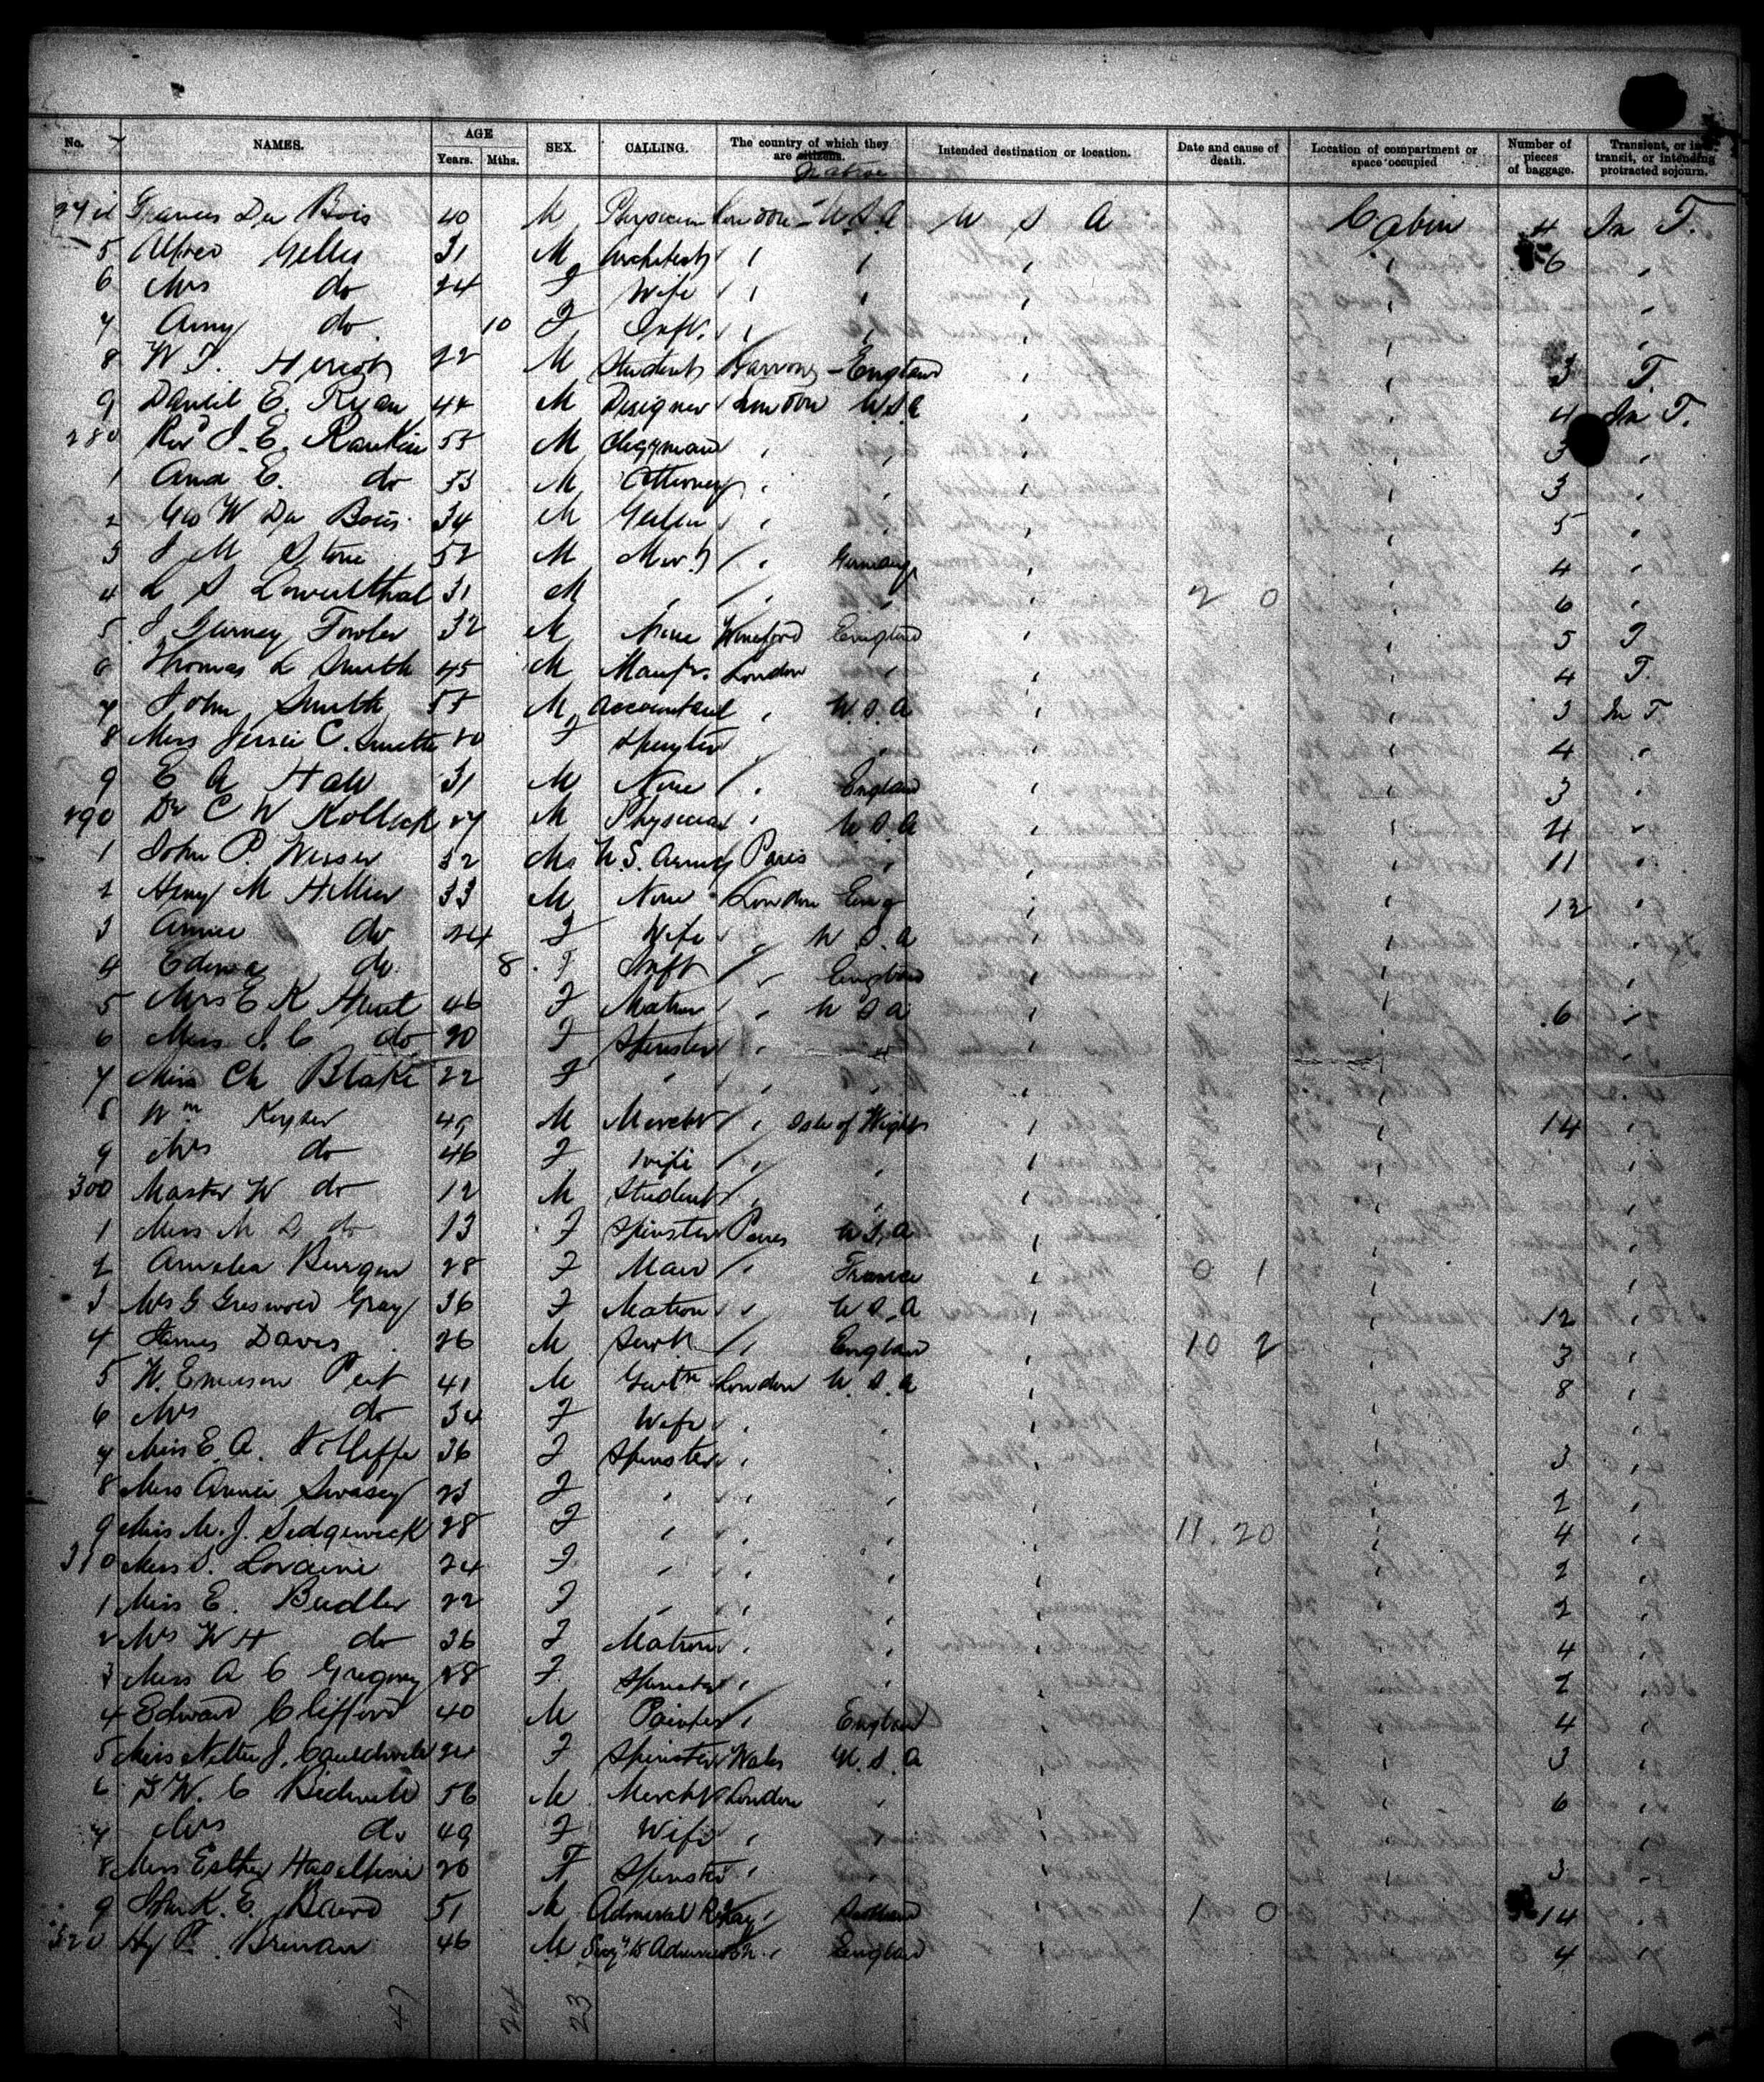 No. NAMES. AGE SEX. CALLING. The country of which they are citizens. Intended destination or location. Date and cause of death. Location of compartment or space occupied Number of pieces of baggage. Transient, or in transit, or intending protracted sojourn.
Years. Mths. Native
Du Bois 40 M Physician London - U.S.A U S A Cabin 4 In T.
5 Alfred Gelles 31 M Architect " " " " 6 "
6 Mrs do 24 F Wife " " " " "
7 Amy do 10 F Inft. " " " " "
8 W. T. 22 M Student - England " " 3 T.
9 Daniel E. Ryan 44 M Designer London U.S.A " " 4 In T.
280 Revd J. E. Rankin 55 M Clergyman " " " " 3 "
1 And E. do 53 M Attorney " " " " 3 "
2 Geo W Du Bois 34 M " " " " 5 "
3 J M Stone 52 M Mercht " Germany " " 4 "
4 L S Lowenthal 31 M " " " " 2 0 " 6 "
5 J Gurney Fowler 32 M None England " " 5 T
6 Thomas L Smith 45 M Manfr. London " " " 4 T.
7 John Smith 55 M Accountant " U.S.A " " 3 In T.
8 Miss Jessie C. Smith 20 F Spinster " " " " 4 "
9 E A Hall 31 M None " England " " 3 "
290 Dr C W Kollock 27 M Physician " U S A " " 4 "
1 John P. Wisser 32 M U.S. Army Paris " " " 11 "
2 Henry M Hellier 33 M None London Eng " " 12
3 Annie do 24 F Wife " U.S.A " " "
4 Edna do 8 F Inft " England " " "
5 Mrs E K Hunt 46 F Matron " U S A " " 6 "
6 Miss J. C do 20 F Spinster " " " " "
7 Miss Blake 22 F " " " " " "
8 Wm Keyser 49 M Mercht " Isle of Wight " " 14 "
9 Mrs do 46 F Wife " " " " "
300 Master W do 12 M Student " " " " "
1 Miss M do 13 F Spinster Paris U.S.A " " "
2 Amelia Burgan 28 F Maid " France " 0 1 " "
3 Mrs G Griswold Gray 36 F Matron " U S A " " 12 "
4 James Davis 26 M Servt " England " 10 2 " 3 "
5 W. Emerson Peet 41 M Gentn London U.S.A " " 8 "
6 Mrs do 34 F Wife " " " " "
7 Miss E. A. 36 F Spinster " " " " 3 "
8 Miss Annie Swasey 23 F " " " " " 2 "
9 Miss M. J. Sedgewick 28 F " " " " 11.20 " 4 "
310 Miss S. Loraine 24 F " " " " " 2 "
1 Miss E. Budler 22 F " " " " " 2 "
2 Mrs W H do 36 F Matron " " " " 4 "
3 Miss A C Gregory 28 F Spinster " " " " 2 "
4 Edward Clifford 40 M Painter " England " " 4 "
5 Miss Nettie J. 24 F Spinster Wales U.S.A " " 3 "
6 W. C Bidwell 56 M Mercht London " " " 6 "
7 Mrs do 49 F Wife " " " " "
8 Miss Esther Haseltine 20 F Spinster " " " " 3 "
9 E. Baird 51 M Admiral R. Navy " Scotland " 1 0 " 14 "
320 Hy P. Brenan 46 M Secy to Admiral " England 4 "
47 24 23